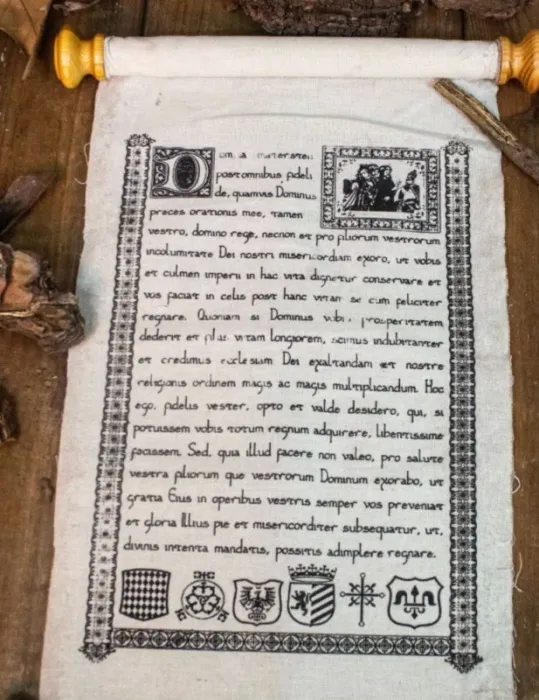 Dom. a materaten
post omnibus fideli
de, quamvis Dominus
preces orationis mee, tamen
vestro, domino rege, necnon et pro filiorum vestrorum
incolumitate Dei nostri misericordiam exoro, ut vobis
et culmen imperii in hac vita dignetur conservare et
vos faciat in celis post hanc vitam se cum feliciter
regnare. Quoniam si Dominus vobis prosperitatem
dederit et plus vitam longiorem, scimus indubitanter
et credimus ecclesiam Dei exaltandam et nostre
religionis ordinem magis ac magis multiplicandum. Hoc
ego, fidelis vester, opto et valde desidero, qui, si
potuissem vobis totum regnum adquirere, libentissime
facissem. Sed, quia illud facere non valeo, pro salute
vestra filiorum que vestrorum Dominum exorabo, ut
gratia Eius in operibus vestris semper vos preveniat
et gloria Illius pie et misericorditer subsequatur, ut,
divinis intenta mandatis, possitis adimplere regnare.